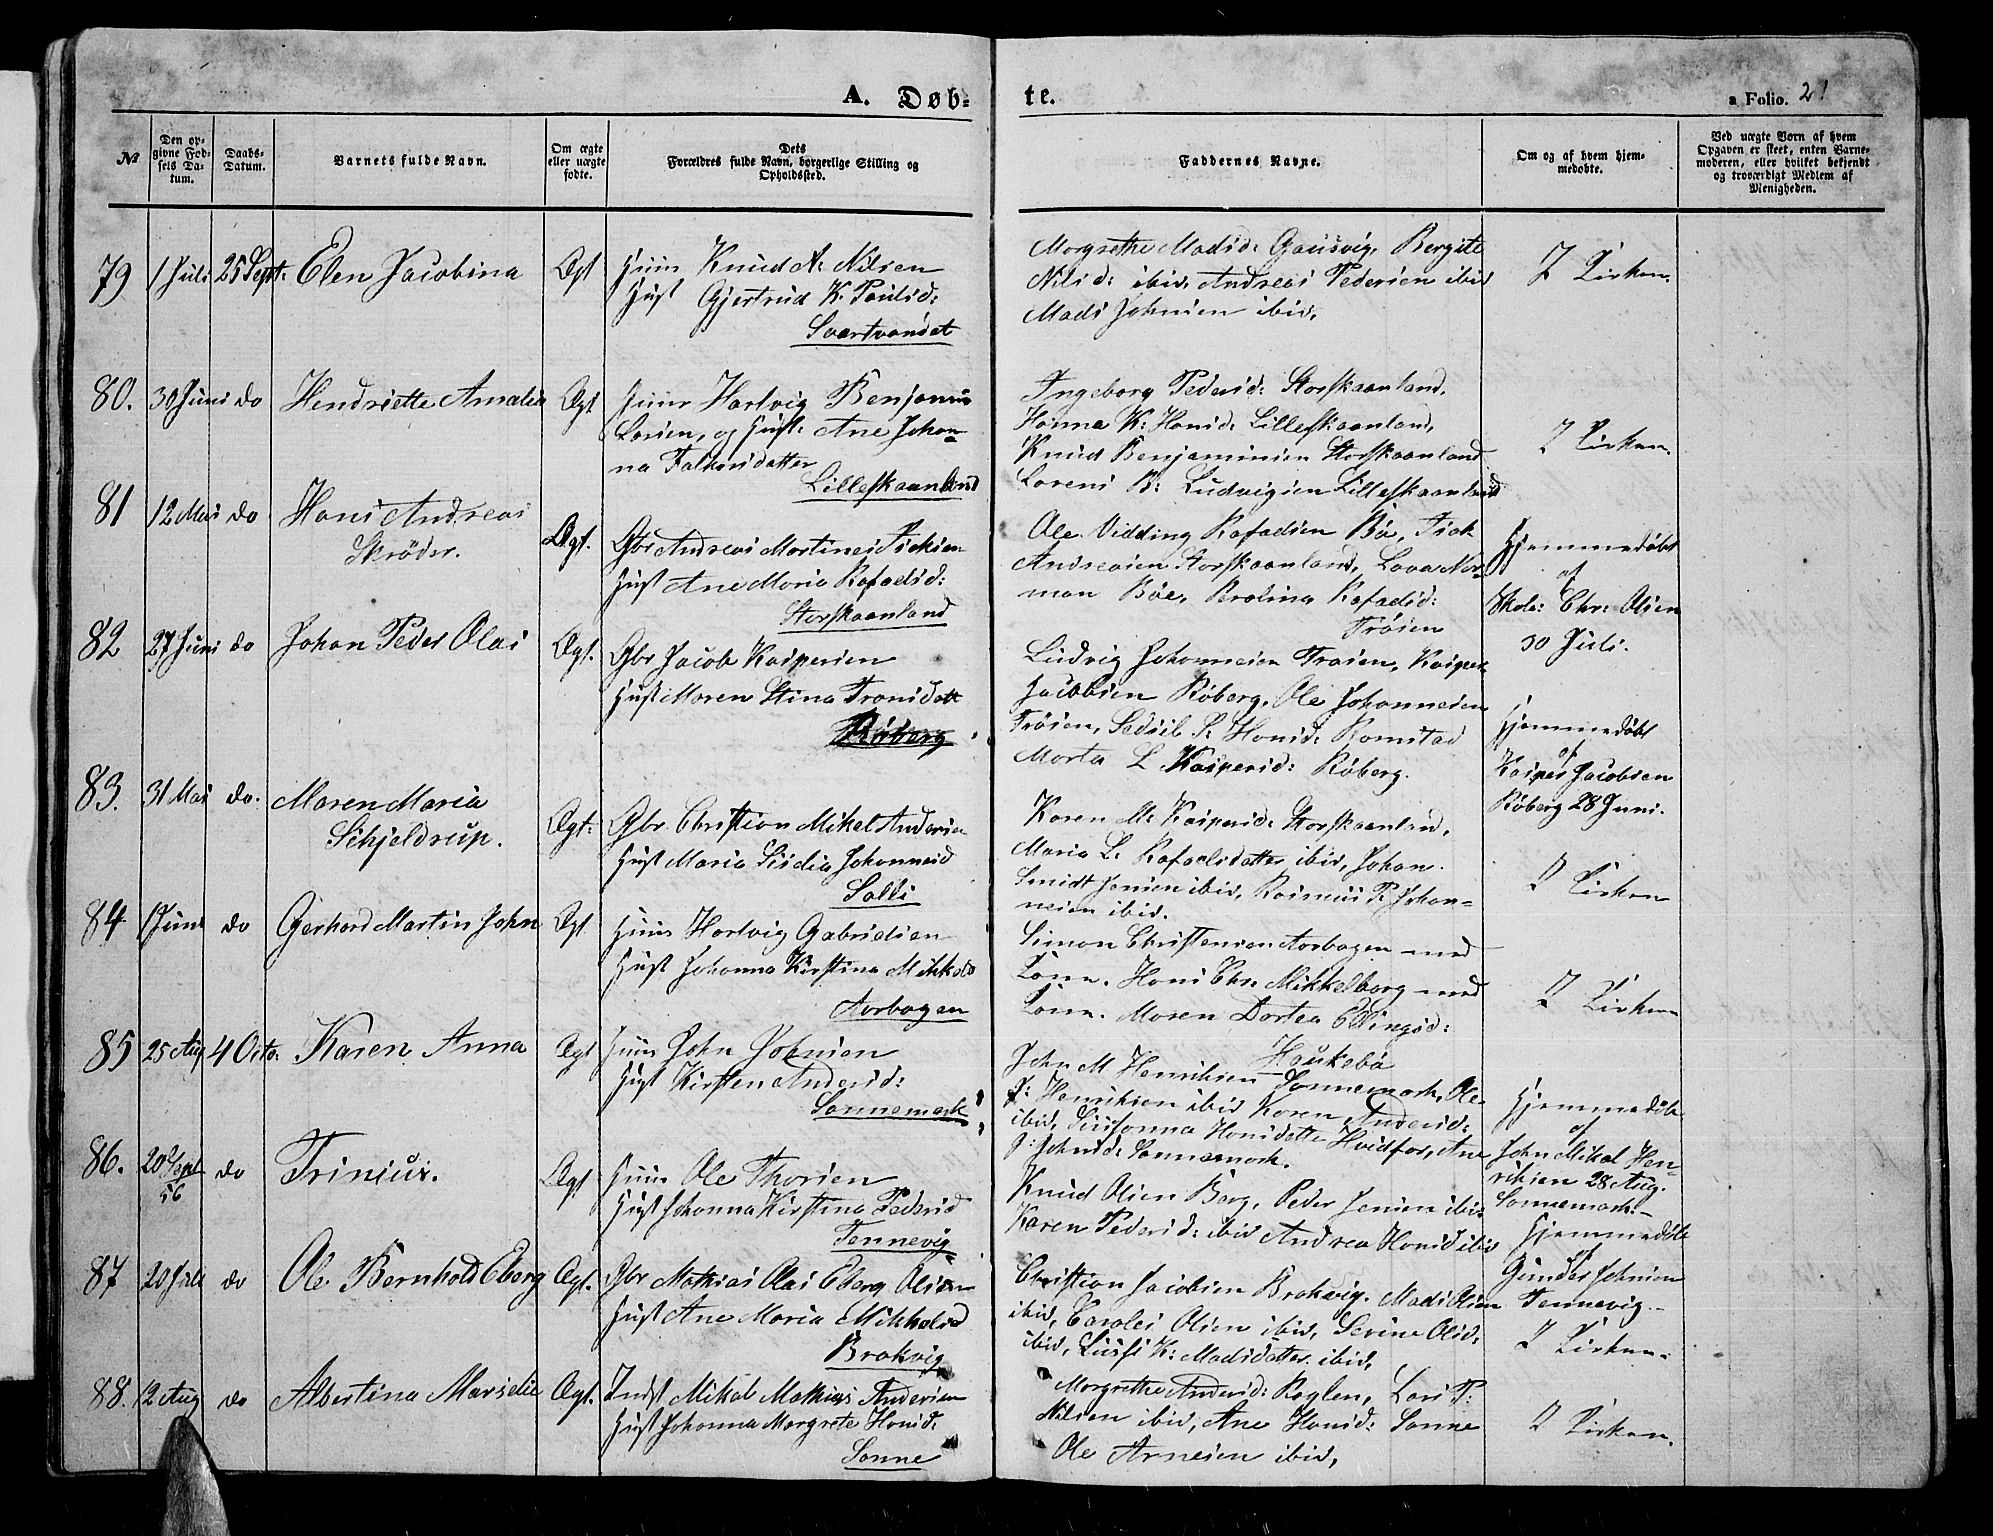 A. Døb-
te.
a Folio. 21
№
Den op-
givne Fød-
sels Da-
tum.
Daabs-
Datum.
Barnets fulde Navn.
Om ægte
eller uægte
fødte.
Dets
Forældres fulde Navn, borgerlige Stilling og
Opholdssted.
Faddernes Navne.
Om og af hvem hjem-
medøbte.
Ved uægte Børn af hvem
Opgaven er skeet, enten Barne-
moderen, eller hvilket bekjendt
og troværdigt Medlem af
Menigheden.
79 1 Juli 25 Sept: Elen Jacobina Ægt
Huus Knud A: Nilsen
Hust Gjertrud K. Paulsd:
Svartvandet
Margrethe Madsd: Gausvig, Bergite
Nilsd: ibid, Andreas Pedersen ibid
Mads Johnsen ibid,
I Kirken.
80. 30 Juni do Hendriette Amalia Ægt
Huus Hartvig Benjamin
Larsen, og Hust: Ane Johan-
na Falkersdatter
Lilleskaanland
Ingeborg Pedersd: Storskaanland,
Hanna K: Hansd: Lilleskaanland,
Knud Benjaminsen Storskaanland
Lorens B: Ludvigsen Lilleskaanland
I Kirken.
81 12 Mai do Hans Andreas
Skrøder.
Ægt.
Gbr Andreas Martines Isaksen
Hust Ane Maria Rafaelsd:
Storskaanland
Ole Vidding Rafaelsen Bø, Isak
Andreasen Storskaanland, Lava Nor-
man Bøe, Berolina Rafaelsd:
Trøsen
Hjemmedøbt
af
Skole: Chr: Olsen
30 Juli.
82 27 Juni do Johan Peder Olai Ægt.
Gbr Jacob Kaspersen
Hust Maren Stina Tronsdatt
Røberg
Ludvig Johannesen Trøsen, Kasper
Jacobsen Røberg, Ole Johannesen
Trøsen, Sedsil P: Hansd: Ramstad
Marta L Kaspersd: Røberg.
Hjemmedøbt
af
Kasper Jacobsen
Røberg 28 Juni.
83. 31 Mai do. Maren Maria
Schjeldrup.
Ægt:
Gbr. Christian Mikal Andersen
Hust Maria Sisilia Johannesd
Salli
Karen M: Kaspersd: Storskaanland,
Maria L: Rafaelsdatter ibid, Johan
Smidt Jensen ibid, Rasmus P: Johan-
nesen ibid.
I Kirken
84 1 Juni do Gerhard Martin John Ægt
Huus Hartvig Gabrielsen
Hust Johanna Kirstina Mikkelsd
Aorbogen
Simon Christensen Aorbogen med
Kone. Hans Chr: Mikkelborg med
Kone. Maren Dortea Ellingsd:
Haukebø
I Kirken
85 25 Aug 4 Octo: Karen Anna Ægt
Huus John Johnsen
Hust Kirsten Andersd:
Sannemark
John M Henriksen Sannemark, Ole
P: Henriksen ibid Karen Andersd:
ibid, Susanna Hansdatter Hvidfor, Ane
J: Johnsd: Sannemark.
Hjemmedøbt
af
John Mikal Hen-
riksen 28 Aug.
Sannemark.
86. 20 Sept
56
do Trinius. Ægt
Huus Ole Thorsen
Hust Johanna Kirstina Pedersd
Tennevig
Knud Olsen Berg, Peder Jensen ibid
Karen Pedersd: ibid Andrea Hansd ibid
Hjemmedøbt
af
Gunder Johnsen
Tennevig.
87 20 Juli do Ole Bernhold Eberg Ægt.
Gbr Mathias Olai Eberg Olsen
Hust Ane Maria Mikkelsd
Brokvig
Christian Jacobsen Brokvig. Mads Olsen
ibid, Carolei Olsen ibid, Serine Olsd:
ibid, K: Madsdatter ibid,
I Kirken
88. 12 Aug do Albertina Marselie Ægt.
Indst Mikal Mathias Andersen
Hust Johanna Margrete Hansd:
Sanne
Margrethe Andersd: Røglen, Lars P:
Nilsen ibid, Ane Hansd: Sanne
Ole Arnesen ibid,
I Kirken.